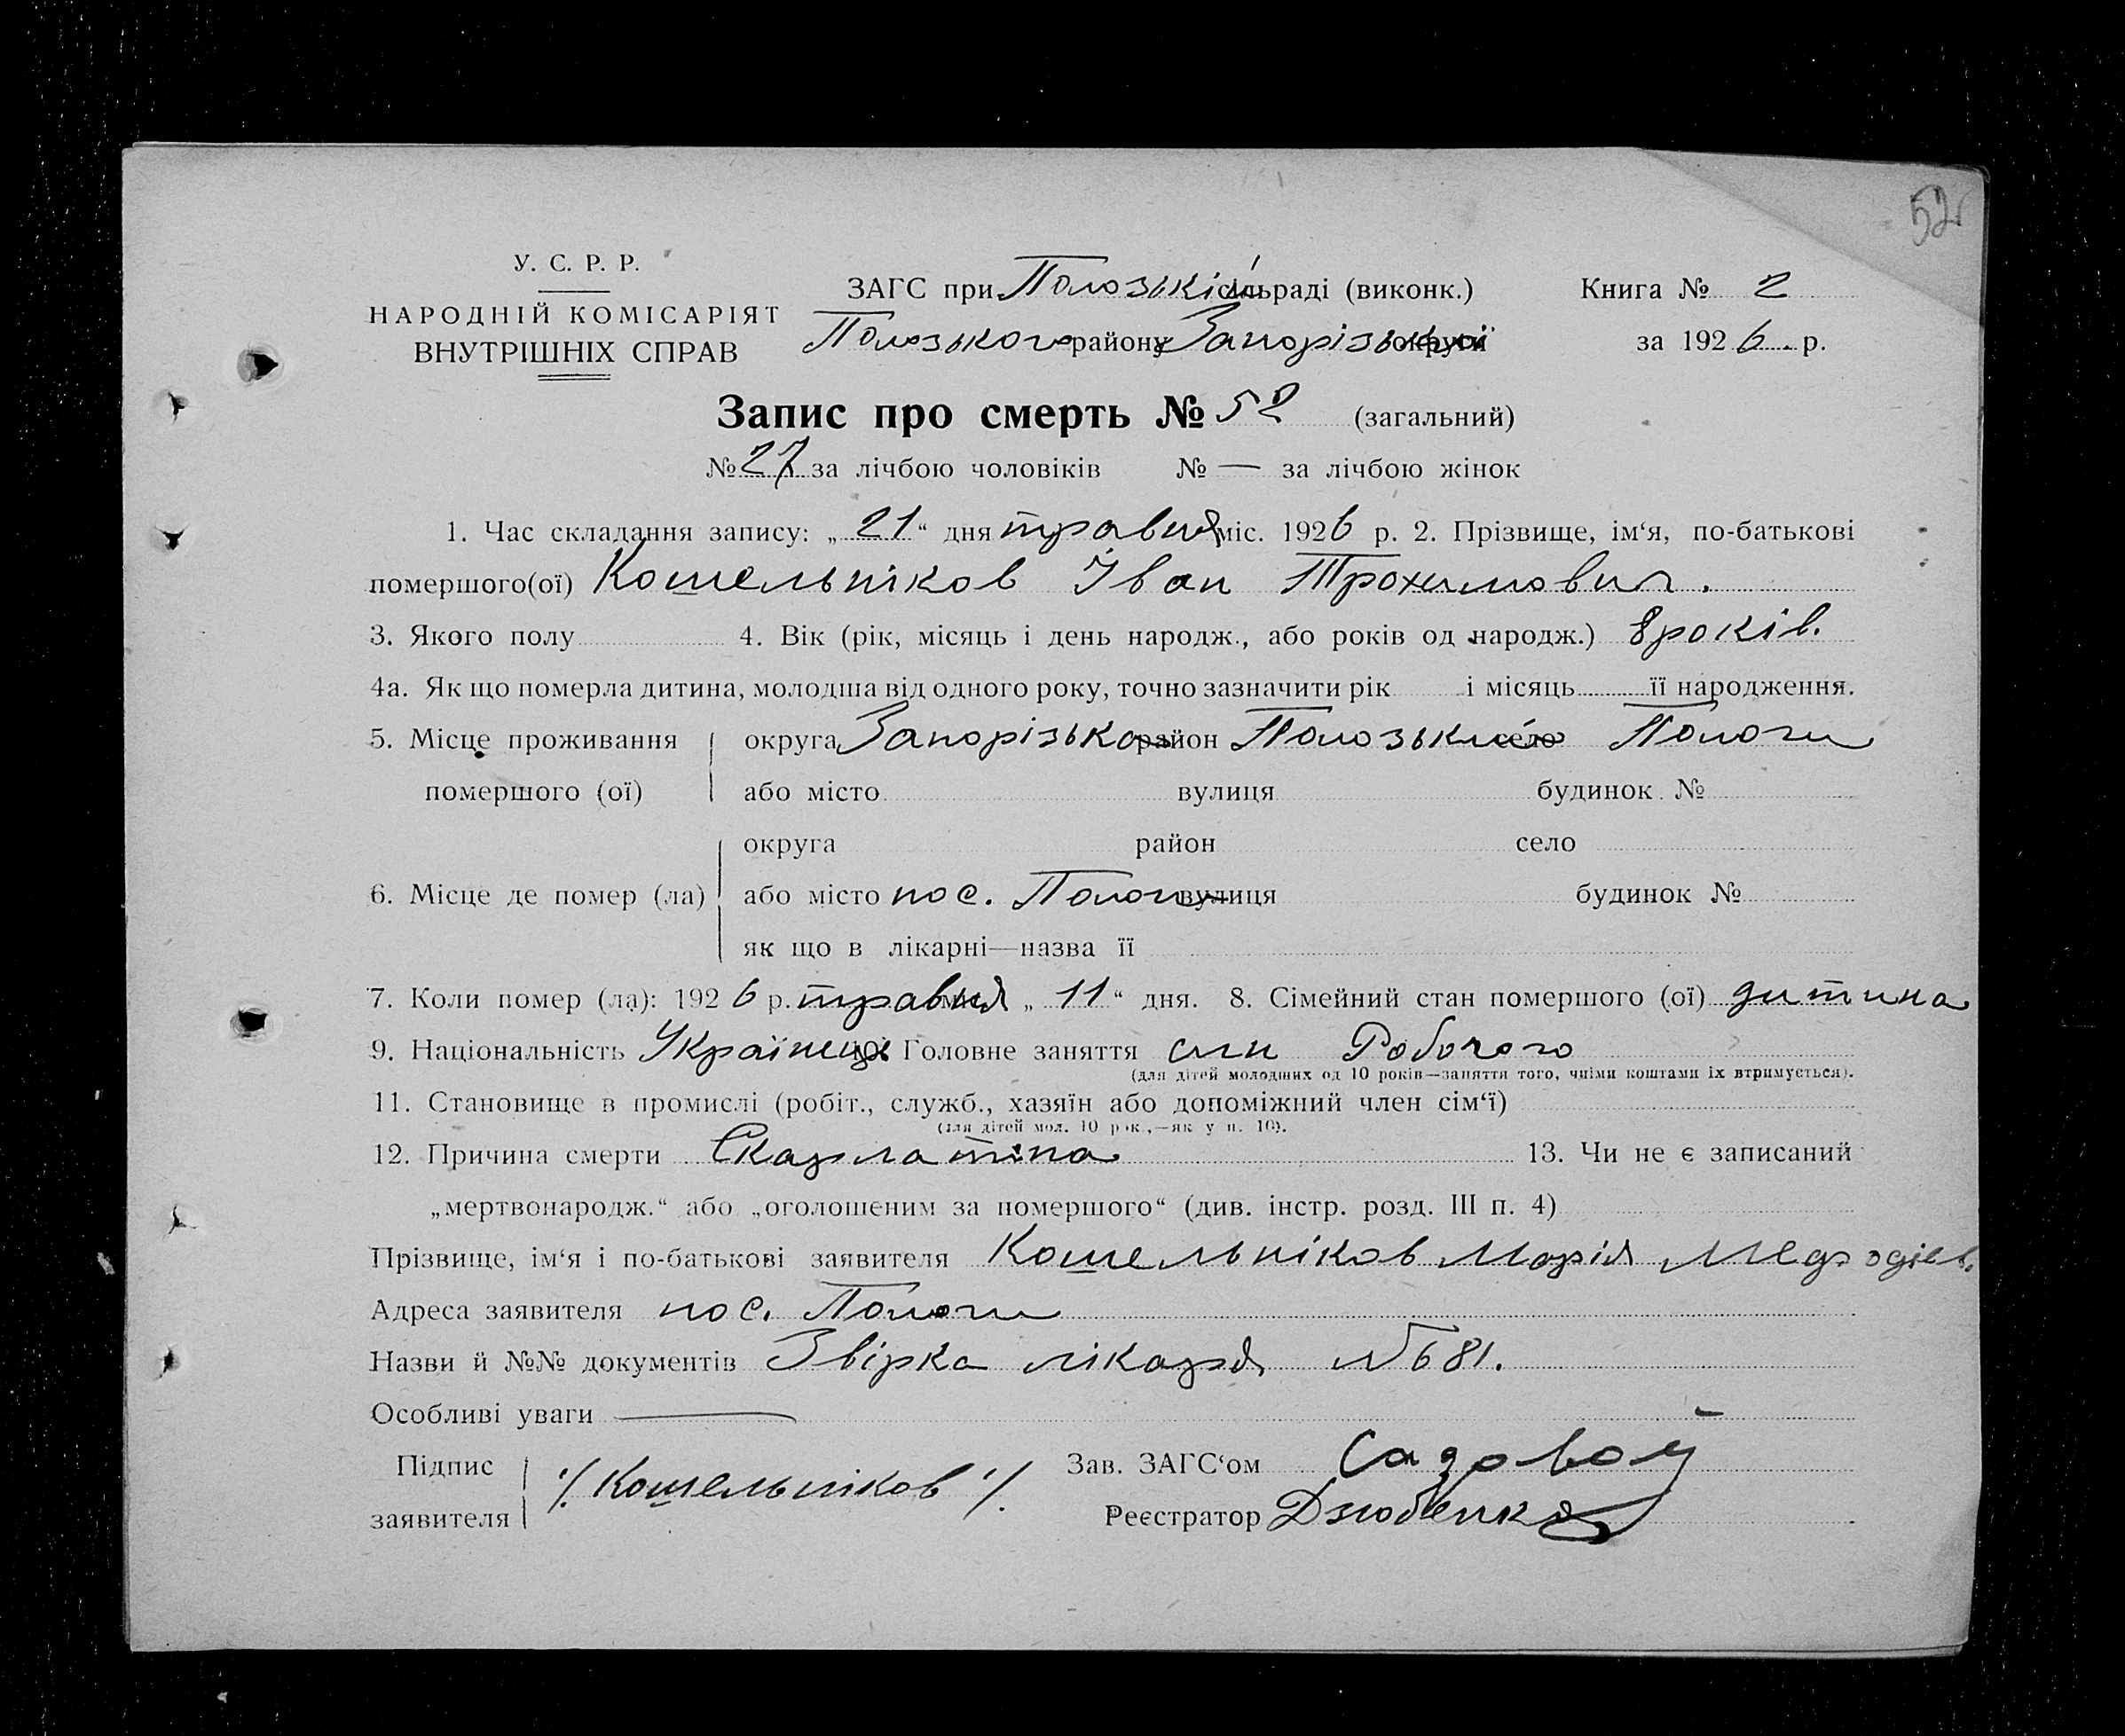 52
У. С. Р. Р.
НАРОДНІЙ КОМІСАРІЯТ
ВНУТРІШНІХ СПРАВ
ЗАГС при Полозькій сільраді (виконк.) Книга № 2
Полозького району Запорізької округи за 1926 р.
Запис про смерть № 52 (загальний)
№ 27 за лічбою чоловіків № — за лічбою жінок
1. Час складання запису: „21“ дня травня міс. 1926 р. 2. Прізвище, ім‘я, по-батькові
помершого(ої) Кошельніков Іван Трохимович.
3. Якого полу 4. Вік (рік, місяць і день народж., або років од народж.) 8 років.
4а. Як що померла дитина, молодша від одного року, точно зазначити рік і місяць її народження.
5. Місце проживання округа Запорізька район Полозький село Пологи
помершого (ої) або місто вулиця будинок №
округа район село
6. Місце де помер (ла) або місто пос. Пологи вулиця будинок №
як що в лікарні—назва її
7. Коли помер (ла): 1926 р. травня міс. „11“ дня. 8. Сімейний стан помершого (ої) дитина
9. Національність Українець Головне заняття син Робочого
(для дітей молодших од 10 років—заняття того, чиїми коштами їх втримується).
11. Становище в промислі (робіт., служб., хазяїн або допоміжний член сім‘ї)
(для дітей мол. 10 рок.,—як у п. 10).
12. Причина смерти Скарлатіна 13. Чи не є записаний
„мертвонародж.“ або „оголошеним за помершого“ (див. інстр. розд. III п. 4)
Прізвище, ім‘я і по-батькові заявителя Кошельніков Марія
Адреса заявителя пос. Пологи
Назви й №№ документів Звірка лікаря №681.
Особливі уваги —
Підпис заявителя /Кошельніков/. Зав. ЗАГС‘ом Садовой
Реєстратор Дзюбенко